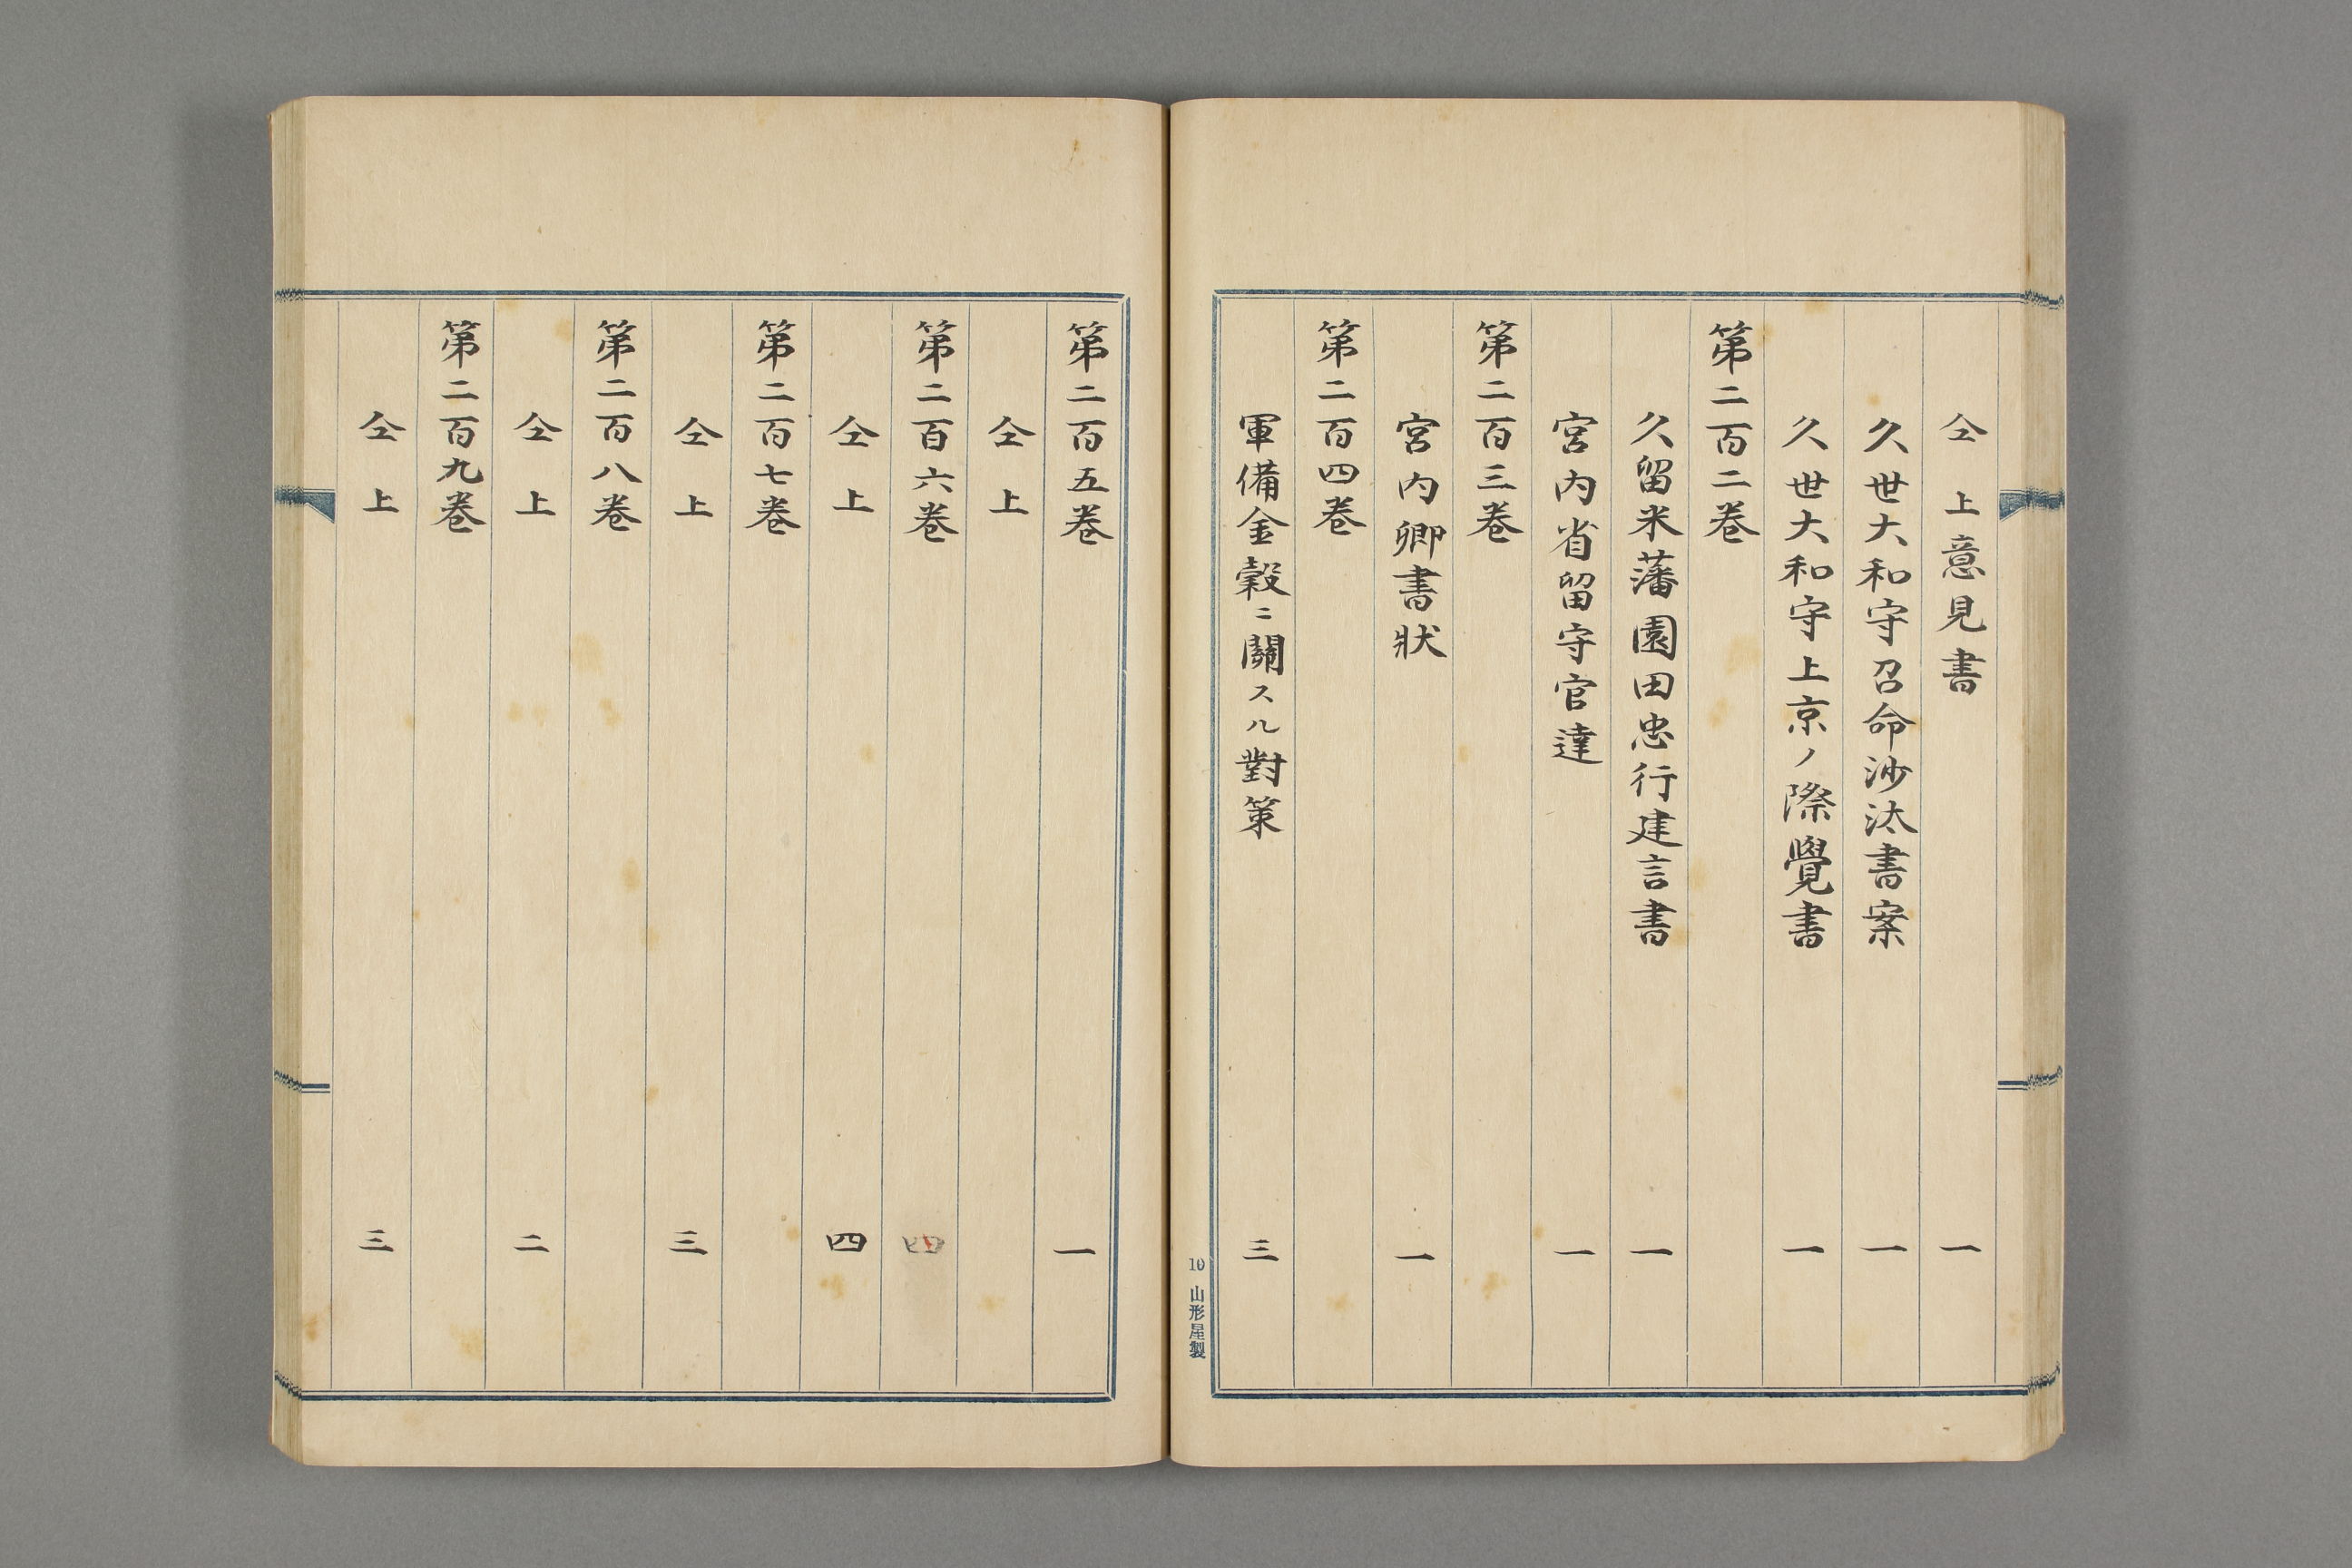 仝　上意見書　一
久世大和守召命沙汰書案　一
久世大和守上京ノ際覺書　一
第二百二卷
久留米藩園田忠行建言書　一
宮内省留守官達　一
第二百三卷
宮内卿書狀　一
第二百四卷
軍備金穀ニ關スル對策　三
10 山形屋製
第二百五卷　一
仝上
第二百六卷　四
仝上　四
第二百七卷
仝上　三
第二百八卷
仝上　二
第二百九卷
仝上　三